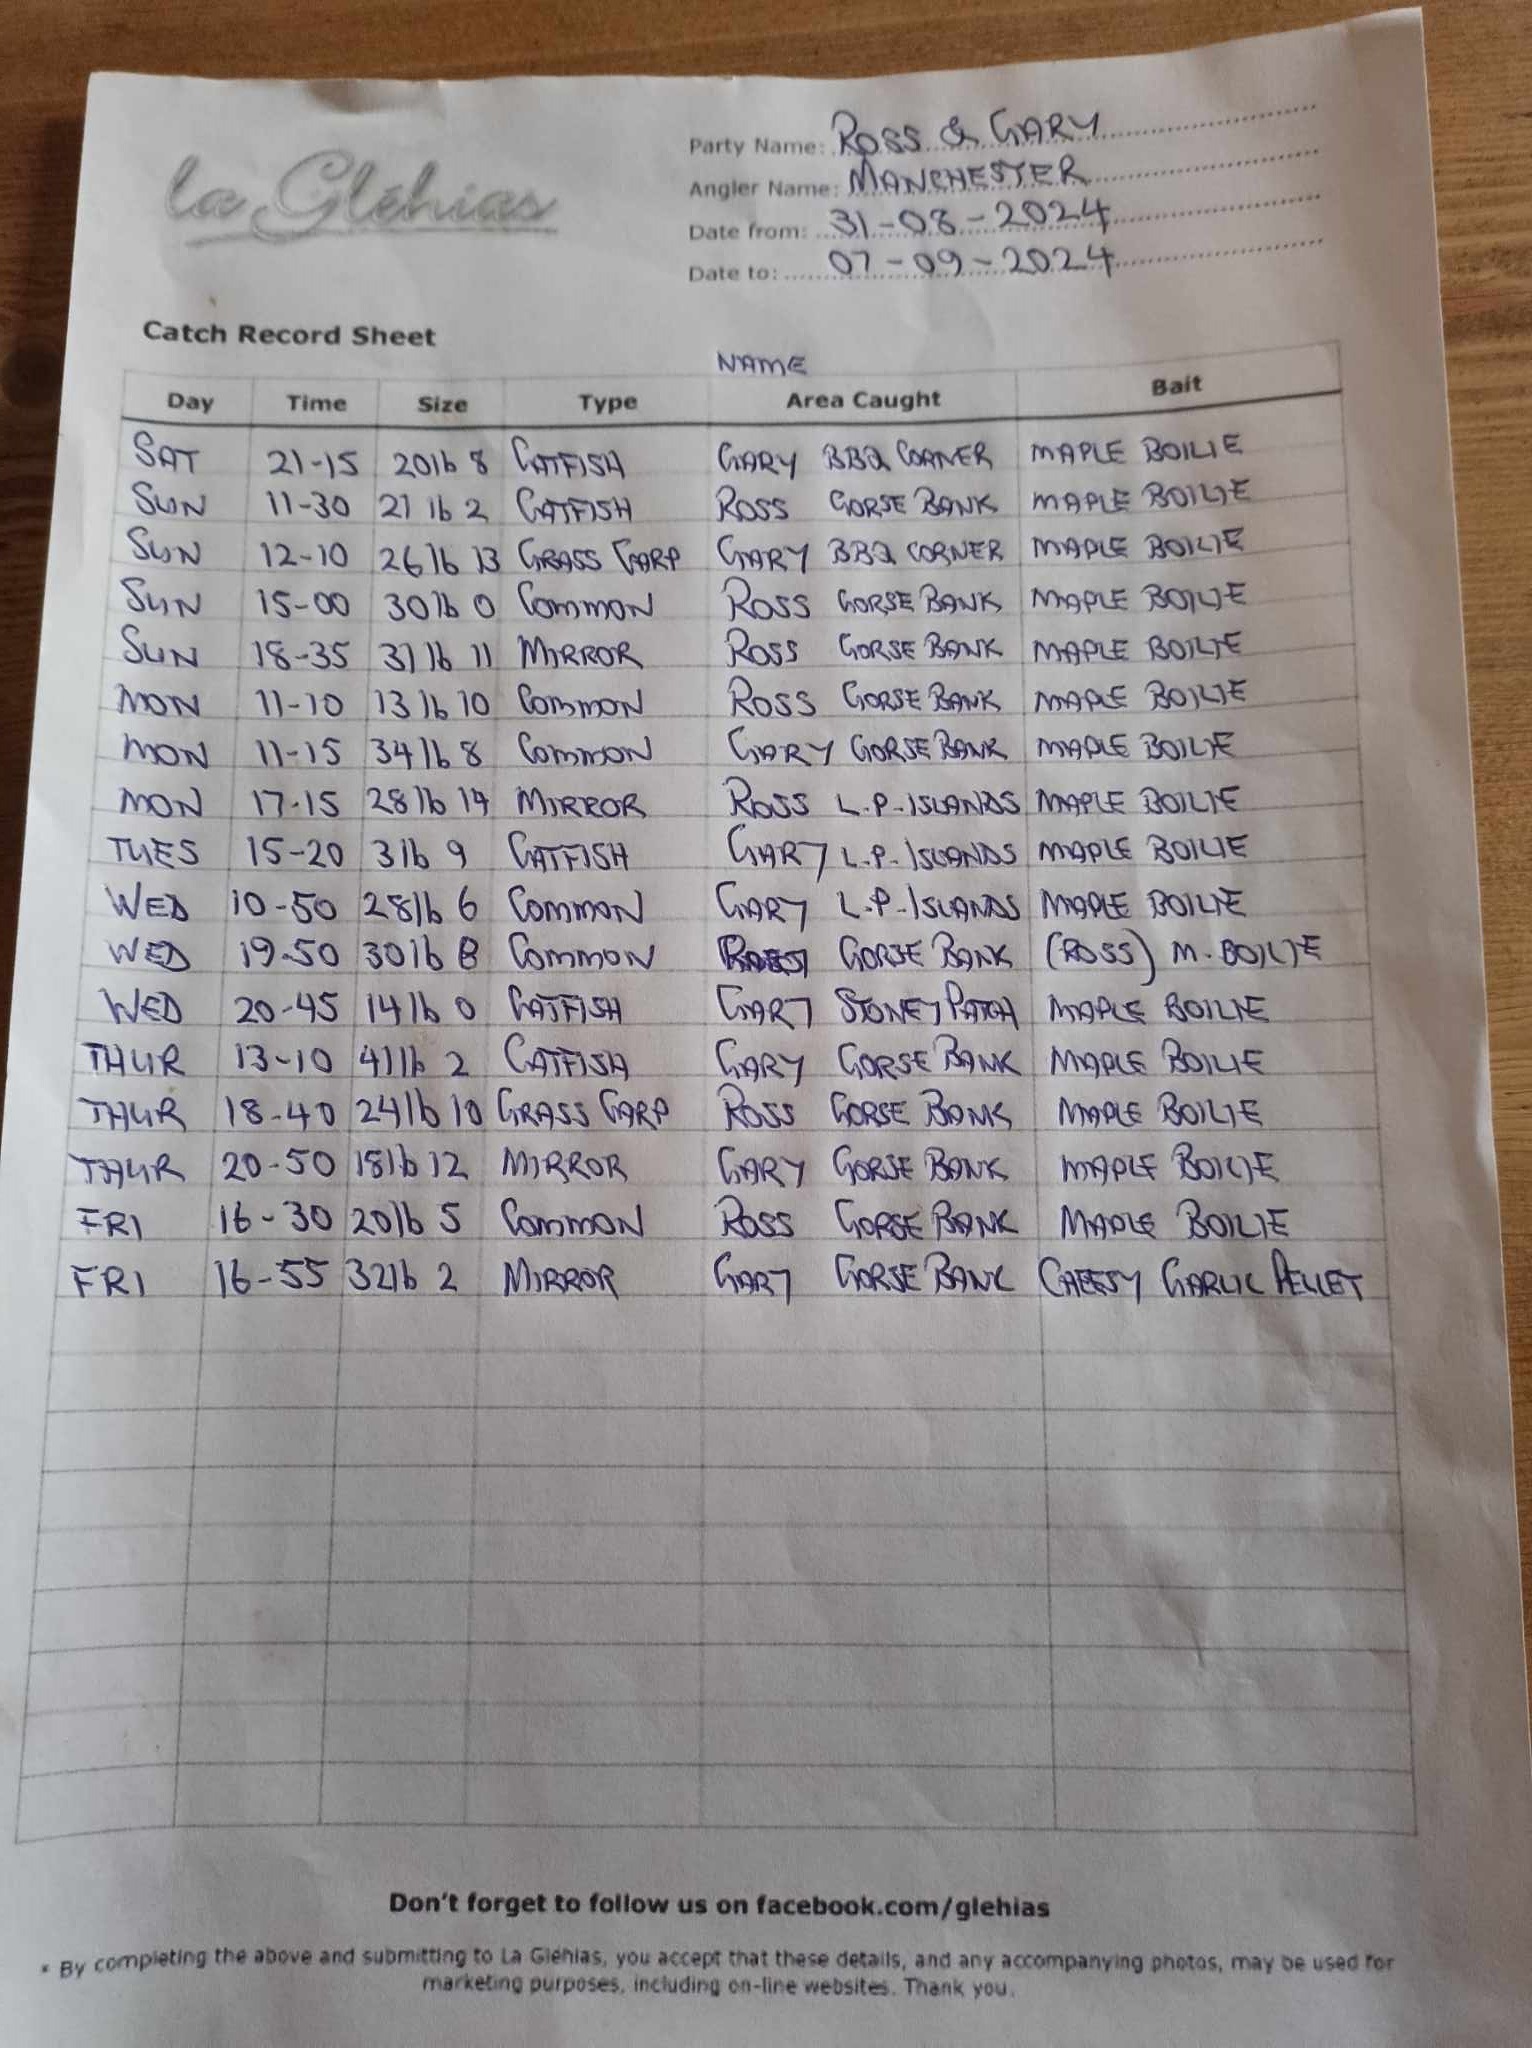 la Gléhias
Party Name: ROSS & GARY
Angler Name: MANCHESTER
Date from: 31-08-2024
Date to: 07-09-2024
Catch Record Sheet
NAME
Day Time Size Type Area Caught Bait
SAT 21-15 20lb 8 CATFISH GARY BBQ CORNER MAPLE BOILIE
SUN 11-30 21lb 2 CATFISH ROSS GORSE BANK MAPLE BOILIE
SUN 12-10 26lb 13 GRASS CARP GARY BBQ CORNER MAPLE BOILIE
SUN 15-00 30lb 0 COMMON ROSS GORSE BANK MAPLE BOILIE
SUN 18-35 31lb 11 MIRROR ROSS GORSE BANK MAPLE BOILIE
MON 11-10 13lb 10 COMMON ROSS GORSE BANK MAPLE BOILIE
MON 11-15 34lb 8 COMMON GARY GORSE BANK MAPLE BOILIE
MON 17-15 28lb 14 MIRROR ROSS L.P-ISLANDS MAPLE BOILIE
TUES 15-20 31b 9 CATFISH GARY L.P-ISLANDS MAPLE BOILIE
WED 10-50 28lb 6 COMMON GARY L.P-ISLANDS MAPLE BOILIE
WED 19-50 30lb 8 COMMON GORSE BANK (ROSS) M. BOILIE
WED 20-45 14lb 0 CATFISH GARY STONEY PATCH MAPLE BOILIE
THUR 13-10 41lb 2 CATFISH GARY GORSE BANK MAPLE BOILIE
THUR 18-40 24lb 10 GRASS CARP ROSS GORSE BANK MAPLE BOILIE
THUR 20-50 18lb 12 MIRROR GARY GORSE BANK MAPLE BOILIE
FRI 16-30 20lb 5 COMMON ROSS GORSE BANK MAPLE BOILIE
FRI 16-55 32lb 2 MIRROR GARY GORSE BANK CHEESY GARLIC PELLET
Don't forget to follow us on facebook.com/glehias
* By completing the above and submitting to La Gléhias, you accept that these details, and any accompanying photos, may be used for
marketing purposes, including on-line websites. Thank you.